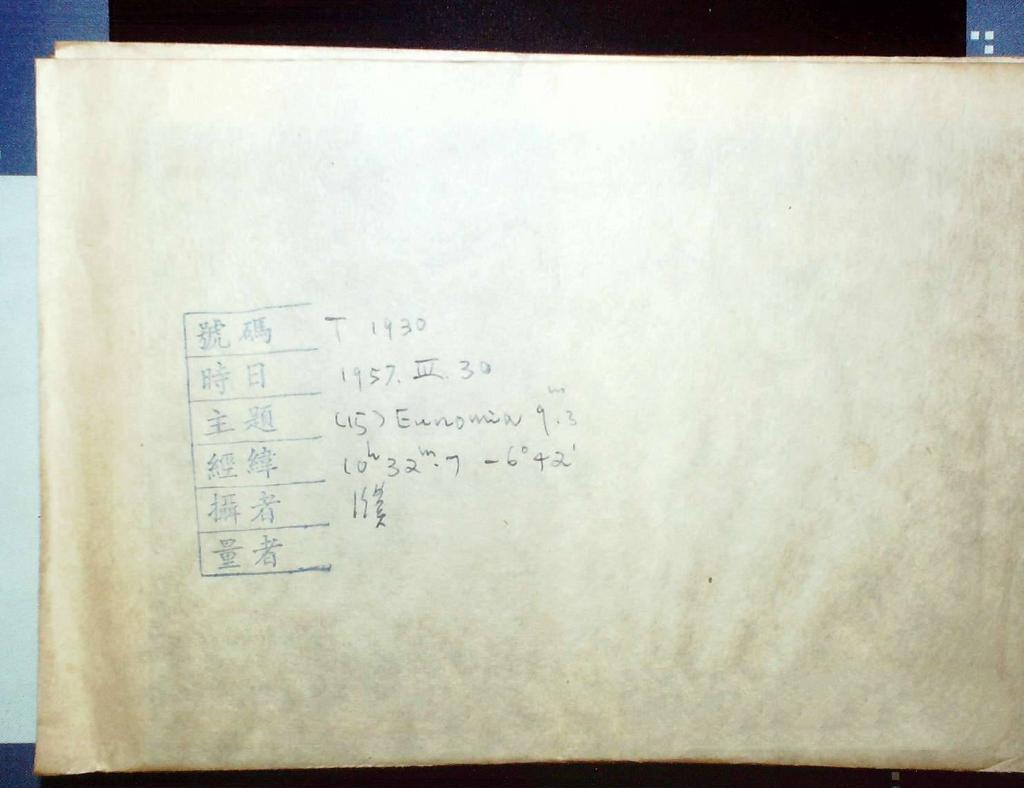 號碼 T 1930
時日 1957. III. 30
主題 (15) Eunomia 9.ᵐ3
經緯 10ʰ 32ᵐ.7 -6°42'
攝者
量者